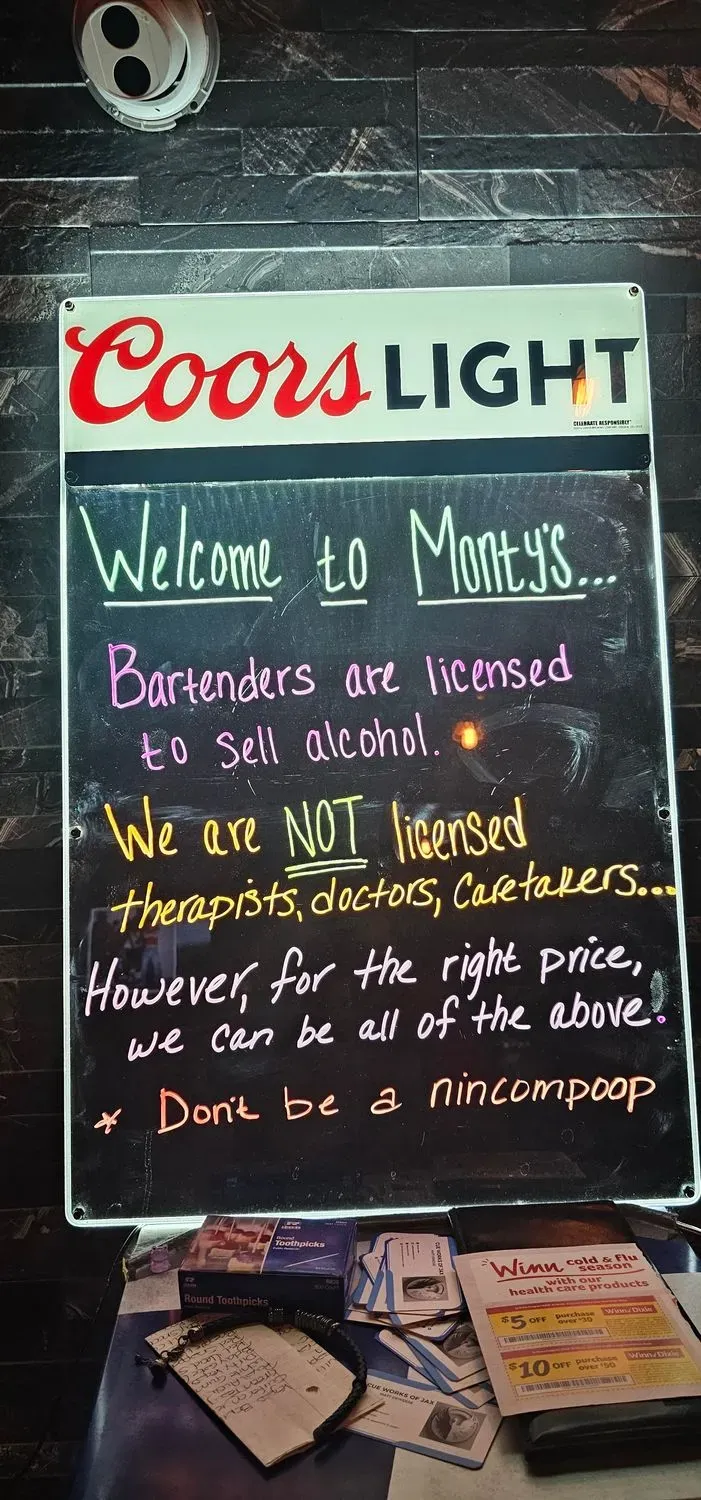 Coors LIGHT
CELEBRATE RESPONSIBLY
Welcome to Monty's...
Bartenders are licensed
to sell alcohol.
We are NOT licensed
therapists, doctors, caretakers...
However, for the right price,
we can be all of the above.
* Don't be a nincompoop
Round
Toothpicks
Round Toothpicks
CUE WORKS OF JAX
Winn cold & flu
season
with our
health care products
$5 OFF purchase
over $30
Winn/Dixie
$10 OFF purchase
over $50
Winn/Dixie